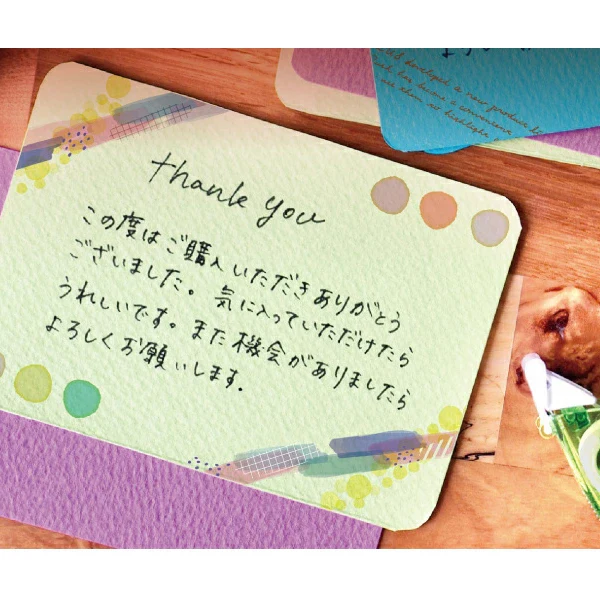 thank you
この度はご購入いただきありがとう
ございました。気に入っていただけたら
うれしいです。また機会がありましたら
よろしくお願いします.
developed a new produce